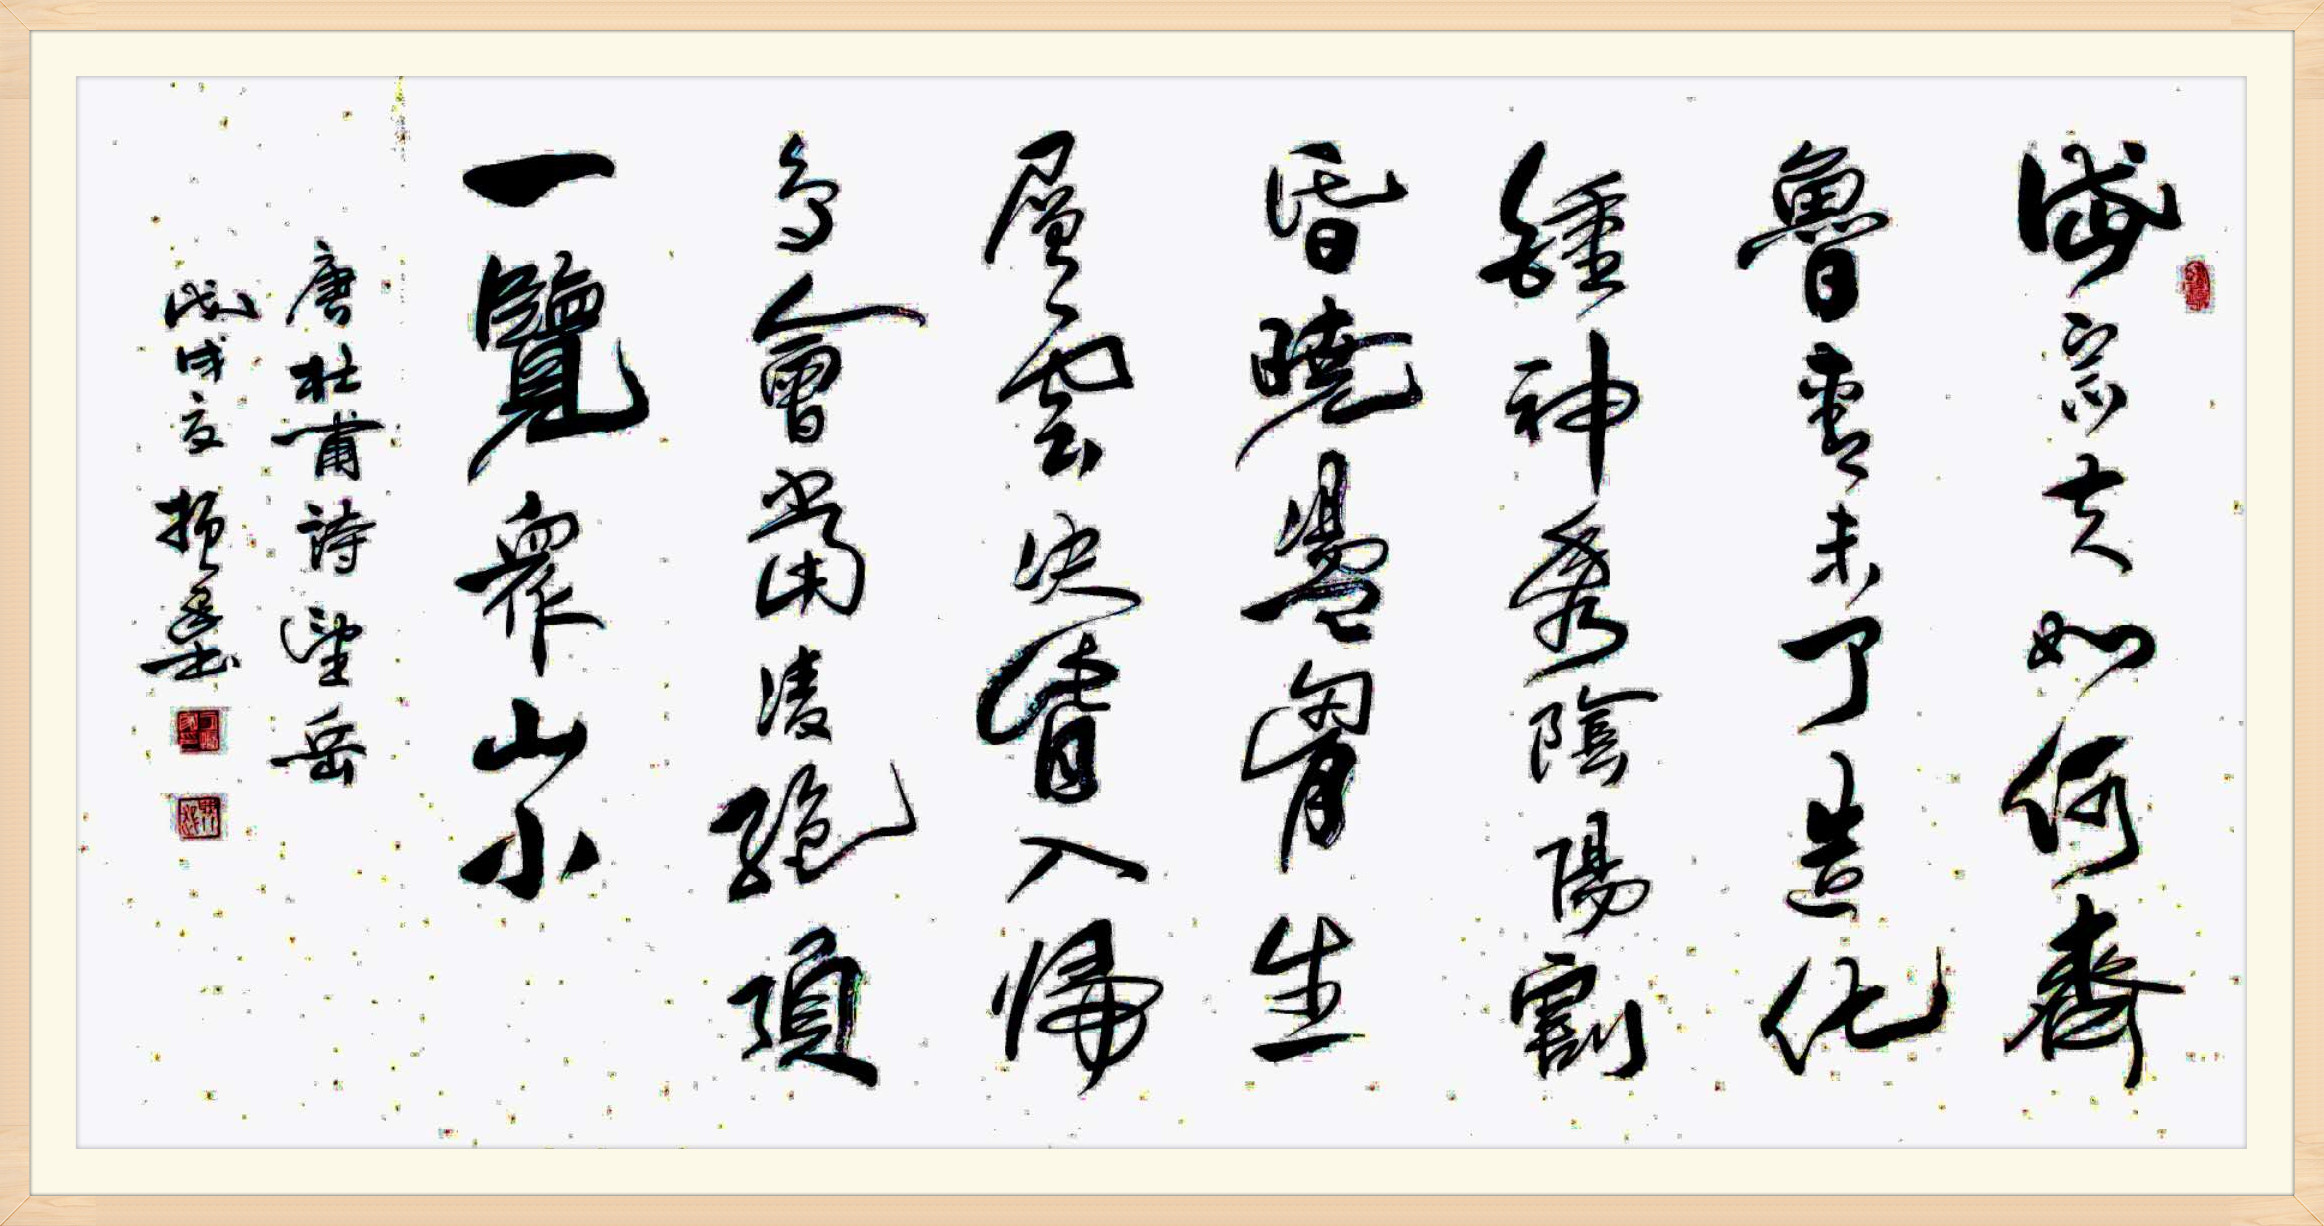 岱宗夫如何齊
魯青未了造化
鍾神秀陰陽割
昏曉盪胷生
層雲決眥入帰
鳥會當凌絕頂
一覽眾山小
唐杜甫詩望岳
戊戌夏振